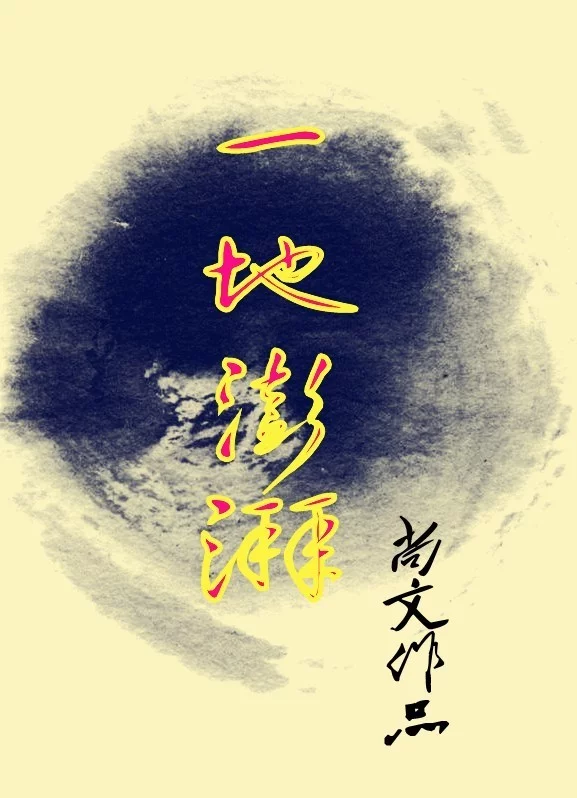 一地澎湃
尚文作品